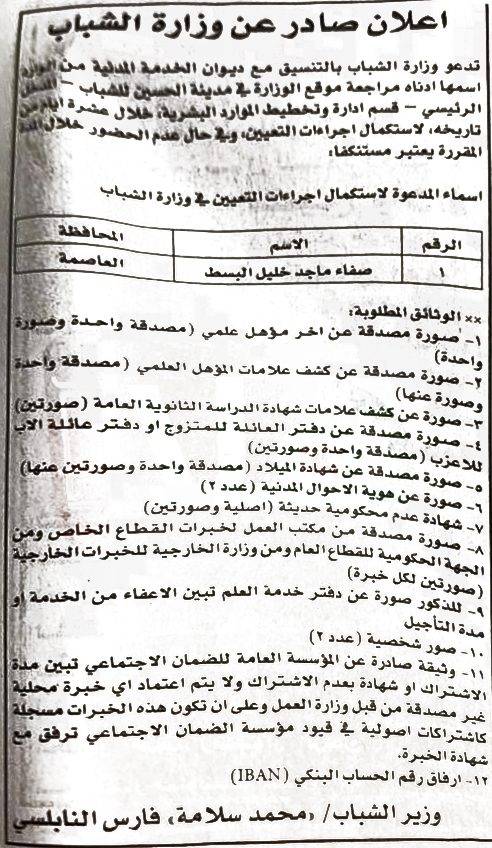 اعلان صادر عن وزارة الشباب
تدعو وزارة الشباب بالتنسيق مع ديوان الخدمة المدنية من الوارد
اسمها ادناه مراجعة موقع الوزارة في مدينة الحسين للشباب – المدخل
الرئيسي – قسم ادارة وتخطيط الموارد البشرية، خلال عشرة ايام من
تاريخه، لاستكمال اجراءات التعيين، وفي حال عدم الحضور خلال المدة
المقررة يعتبر مستنكفا:
اسماء المدعوة لاستكمال اجراءات التعيين في وزارة الشباب
الرقم الاسم المحافظة
١ صفاء ماجد خليل البسط العاصمة
×× الوثائق المطلوبة:
١- صورة مصدقة عن اخر مؤهل علمي (مصدقة واحدة وصورة
واحدة)
٢- صورة مصدقة عن كشف علامات المؤهل العلمي (مصدقة واحدة
وصورة عنها)
٣- صورة عن كشف علامات شهادة الدراسة الثانوية العامة (صورتين)
٤- صورة مصدقة عن دفتر العائلة للمتزوج او دفتر عائلة الاب
للاعزب (مصدقة واحدة وصورتين)
٥- صورة مصدقة عن شهادة الميلاد (مصدقة واحدة وصورتين عنها)
٦- صورة عن هوية الاحوال المدنية (عدد ٢)
٧- شهادة عدم محكومية حديثة (اصلية وصورتين)
٨- صورة مصدقة من مكتب العمل لخبرات القطاع الخاص ومن
الجهة الحكومية للقطاع العام ومن وزارة الخارجية للخبرات الخارجية
(صورتين لكل خبرة)
٩- للذكور صورة عن دفتر خدمة العلم تبين الاعفاء من الخدمة او
مدة التأجيل
١٠- صور شخصية (عدد ٢)
١١- وثيقة صادرة عن المؤسسة العامة للضمان الاجتماعي تبين مدة
الاشتراك او شهادة بعدم الاشتراك ولا يتم اعتماد اي خبرة محلية
غير مصدقة من قبل وزارة العمل وعلى ان تكون هذه الخبرات مسجلة
كاشتراكات اصولية في قيود مؤسسة الضمان الاجتماعي ترفق مع
شهادة الخبرة.
١٢- ارفاق رقم الحساب البنكي (IBAN)
وزير الشباب/ «محمد سلامة» فارس النابلسي